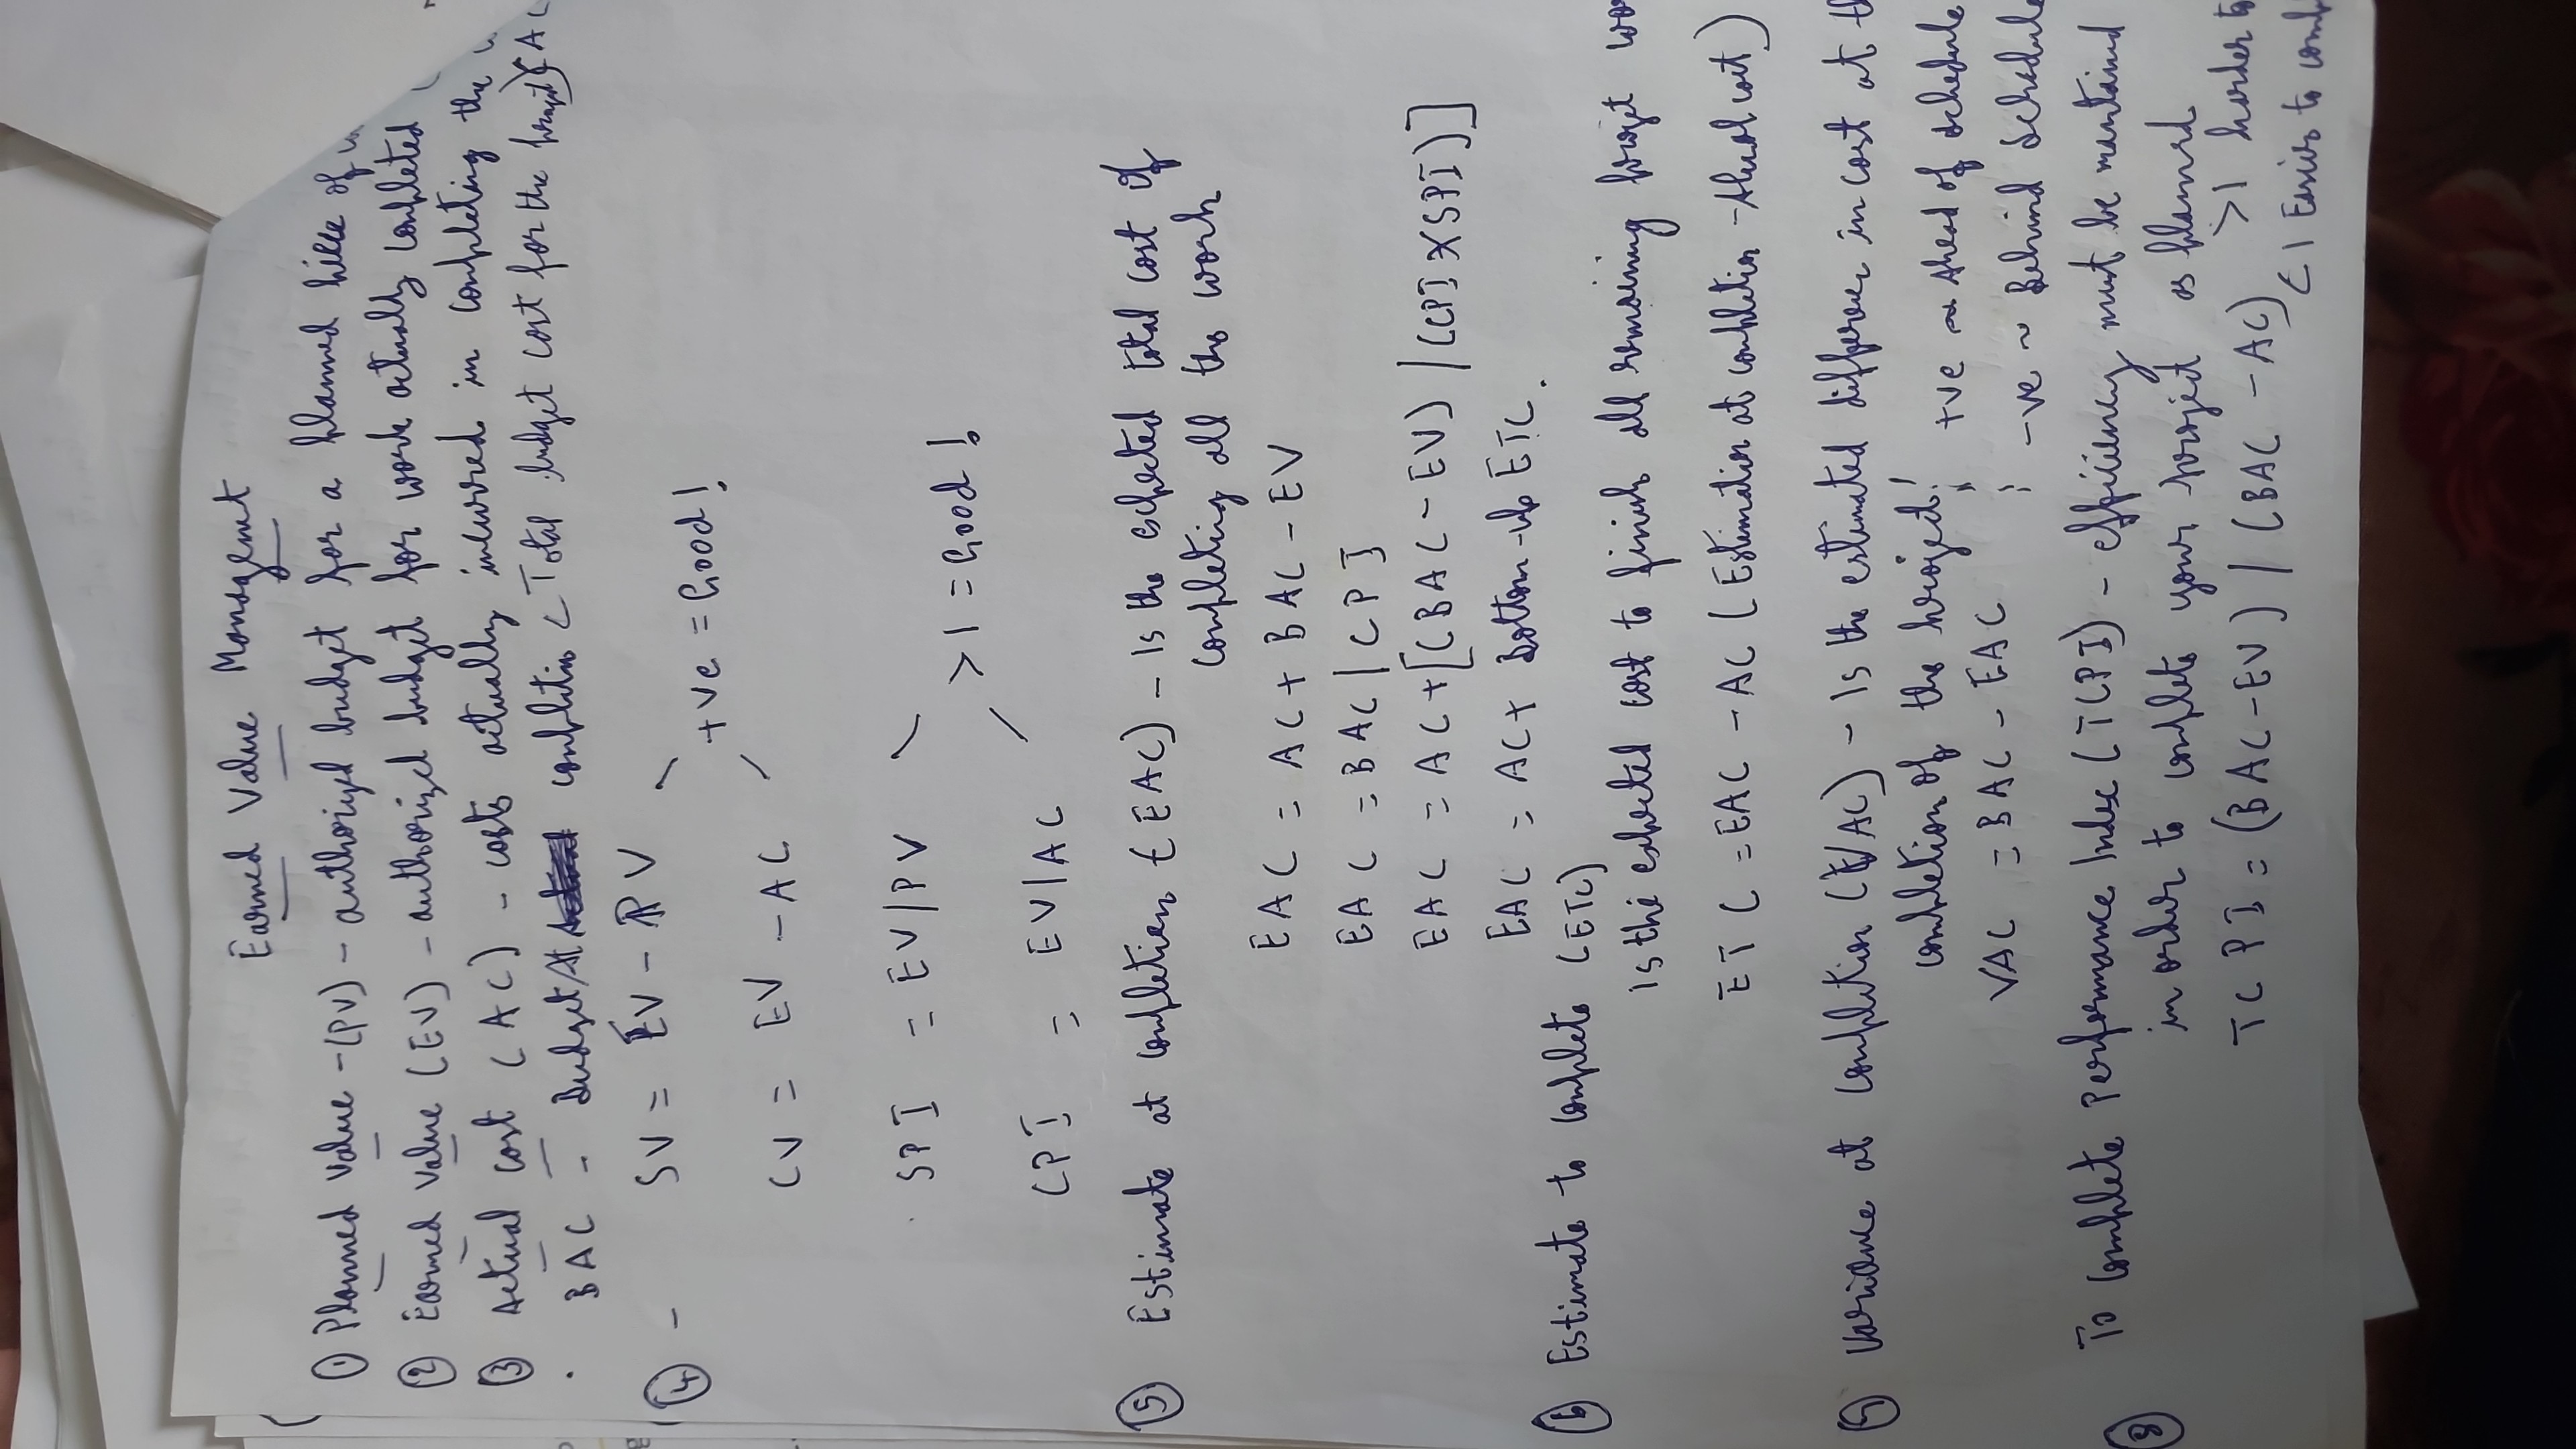 Earned Value Managemet
① Planned Value - (PV) - authorized budget for a planned piece of
② Earned Value (EV) - authorized budget for work actually completed (
③ Actual cost (AC) - costs actually incurred in completing the
BAC - Budget At completion (Total budget cost for the project) (AC
④ - SV = EV - PV
+ve = Good!
CV = EV - AC
SPI = EV/PV
>1 = Good!
CPI = EV/AC
⑤ Estimate at completion (EAC) - Is the expected total cost of
completing all the work
EAC = AC + BAC - EV
EAC = BAC / CPI
EAC = AC + [(BAC - EV) / (CPI X SPI)]
EAC = AC + Bottom-up ETC.
⑥ Estimate to complete (ETC)
Is the expected cost to finish all remaining projet
ETC = EAC - AC (Estimation at completion - Actual cost)
Variance at completion (VAC) - Is the estimated differece in cost at
completion of the project!
+ve ~ Ahead of schedule
VAC = BAC - EAC
-ve ~ Behind Schedule
⑧ To complete Performance Index (TCPI) - efficiency must be mantained
in order to complete your project as planned
TCPI = (BAC - EV) / (BAC - AC) >1 harder to
<1 Easier to